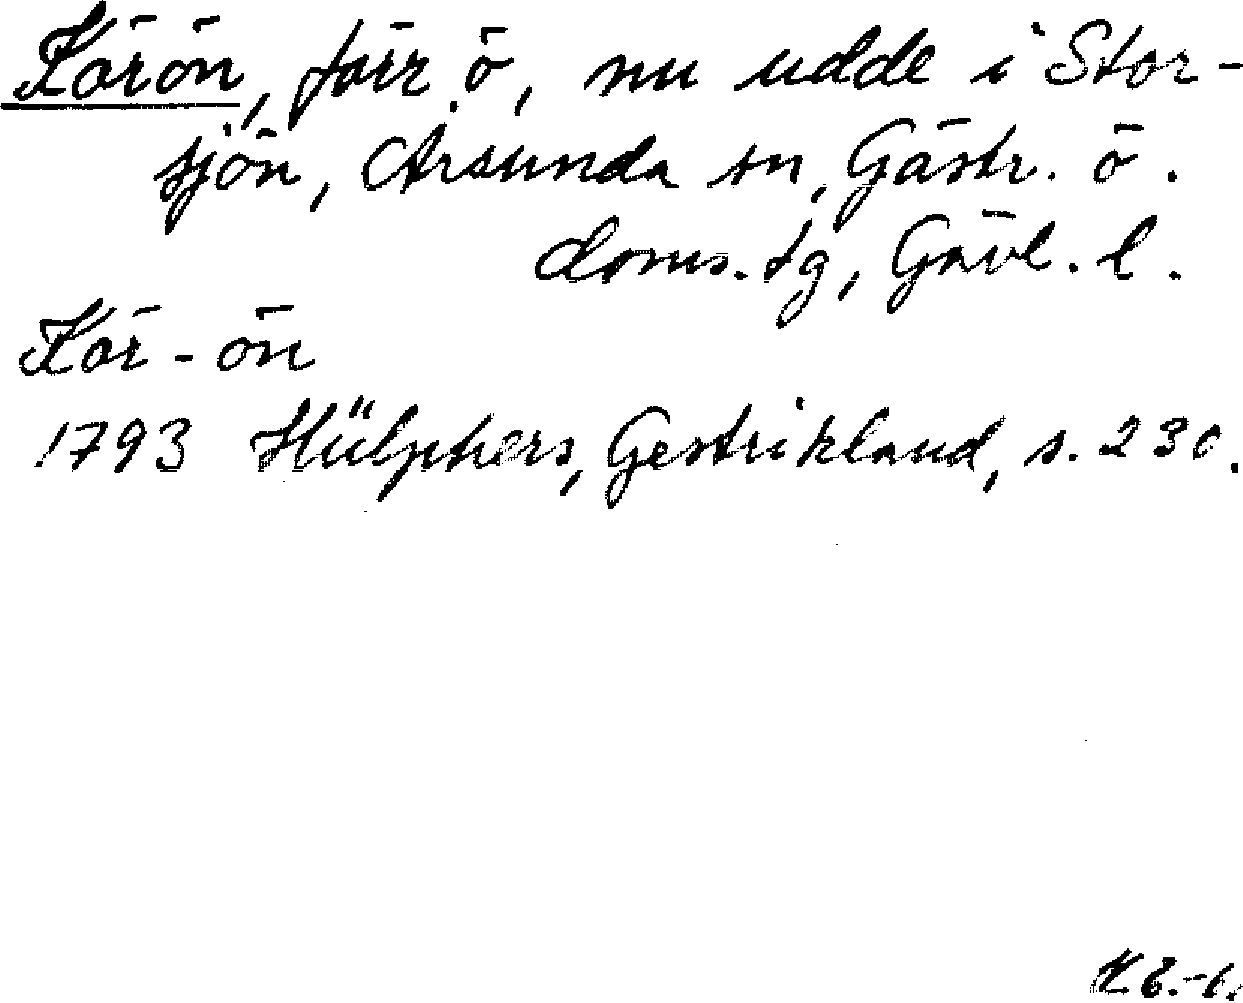 Kärön, förr ö, nu udde i Stor-
sjön, Årsunda sn, Gästr. ö.
doms.tg, Gävl. l.
Kär-ön
1793 Hülphers, Gestrikland, s. 230.